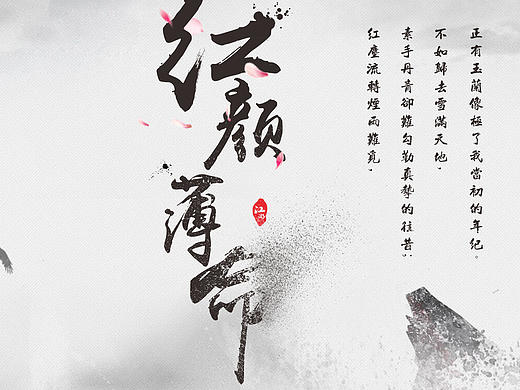 红颜薄命
正有玉蘭像極了我當初的年纪。
不如歸去雪滿天地，
素手丹青卻難勾勒真摯的往昔：
紅塵流轉煙雨難覓，
江湖